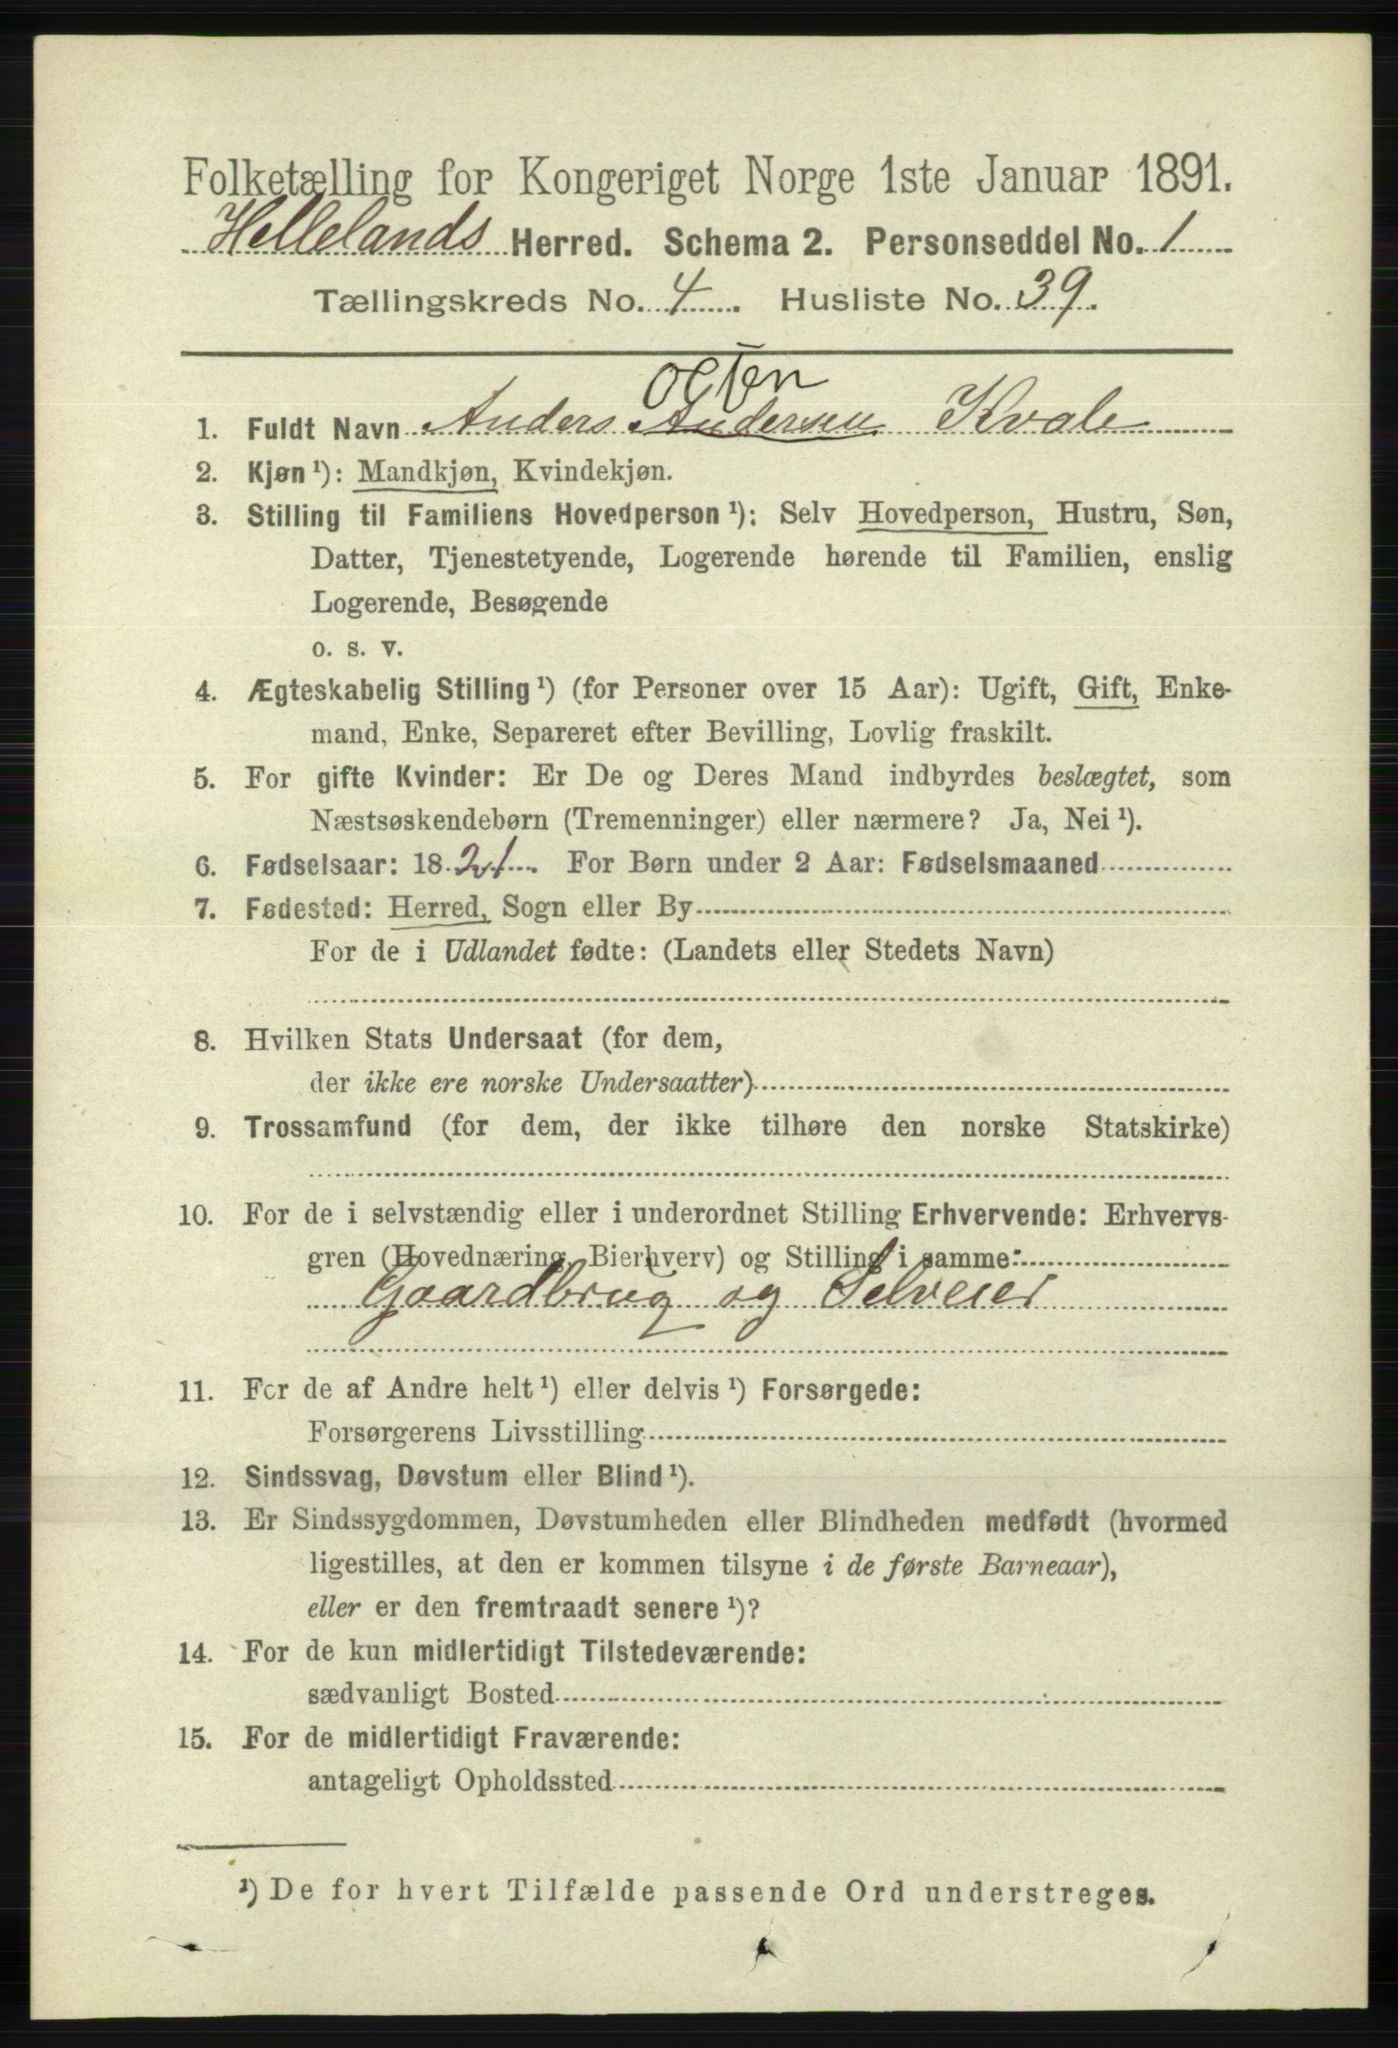 Folketælling for Kongeriget Norge 1ste Januar 1891.
Hellelands Herred. Schema 2. Personseddel No. 1
Tællingskreds No. 4. Husliste No. 39.
1. Fuldt Navn Anders Andersen Kvale
2. Kjøn ¹): Mandkjøn, Kvindekjøn.
3. Stilling til Familiens Hovedperson ¹): Selv Hovedperson, Hustru, Søn,
Datter, Tjenestetyende, Logerende hørende til Familien, enslig
Logerende, Besøgende
o. s. v.
4. Ægteskabelig Stilling ¹) (for Personer over 15 Aar): Ugift, Gift, Enke-
mand, Enke, Separeret efter Bevilling, Lovlig fraskilt.
5. For gifte Kvinder: Er De og Deres Mand indbyrdes beslægtet, som
Næstsøskendebørn (Tremenninger) eller nærmere? Ja, Nei ¹).
6. Fødselsaar: 1821. For Børn under 2 Aar: Fødselsmaaned
7. Fødested: Herred, Sogn eller By
For de i Udlandet fødte: (Landets eller Stedets Navn)
8. Hvilken Stats Undersaat (for dem,
der ikke ere norske Undersaatter)
9. Trossamfund (for dem, der ikke tilhøre den norske Statskirke)
10. For de i selvstændig eller i underordnet Stilling Erhvervende: Erhvervs-
gren (Hovednæring, Bierhverv) og Stilling i samme:
Gaardbrug og Selveier
11. For de af Andre helt ¹) eller delvis ¹) Forsørgede:
Forsørgerens Livsstilling
12. Sindssvag, Døvstum eller Blind ¹).
13. Er Sindssygdommen, Døvstumheden eller Blindheden medfødt (hvormed
ligestilles, at den er kommen tilsyne i de første Barneaar),
eller er den fremtraadt senere ¹)?
14. For de kun midlertidigt Tilstedeværende:
sædvanligt Bosted
15. For de midlertidigt Fraværende:
antageligt Opholdssted
¹) De for hvert Tilfælde passende Ord understreges.